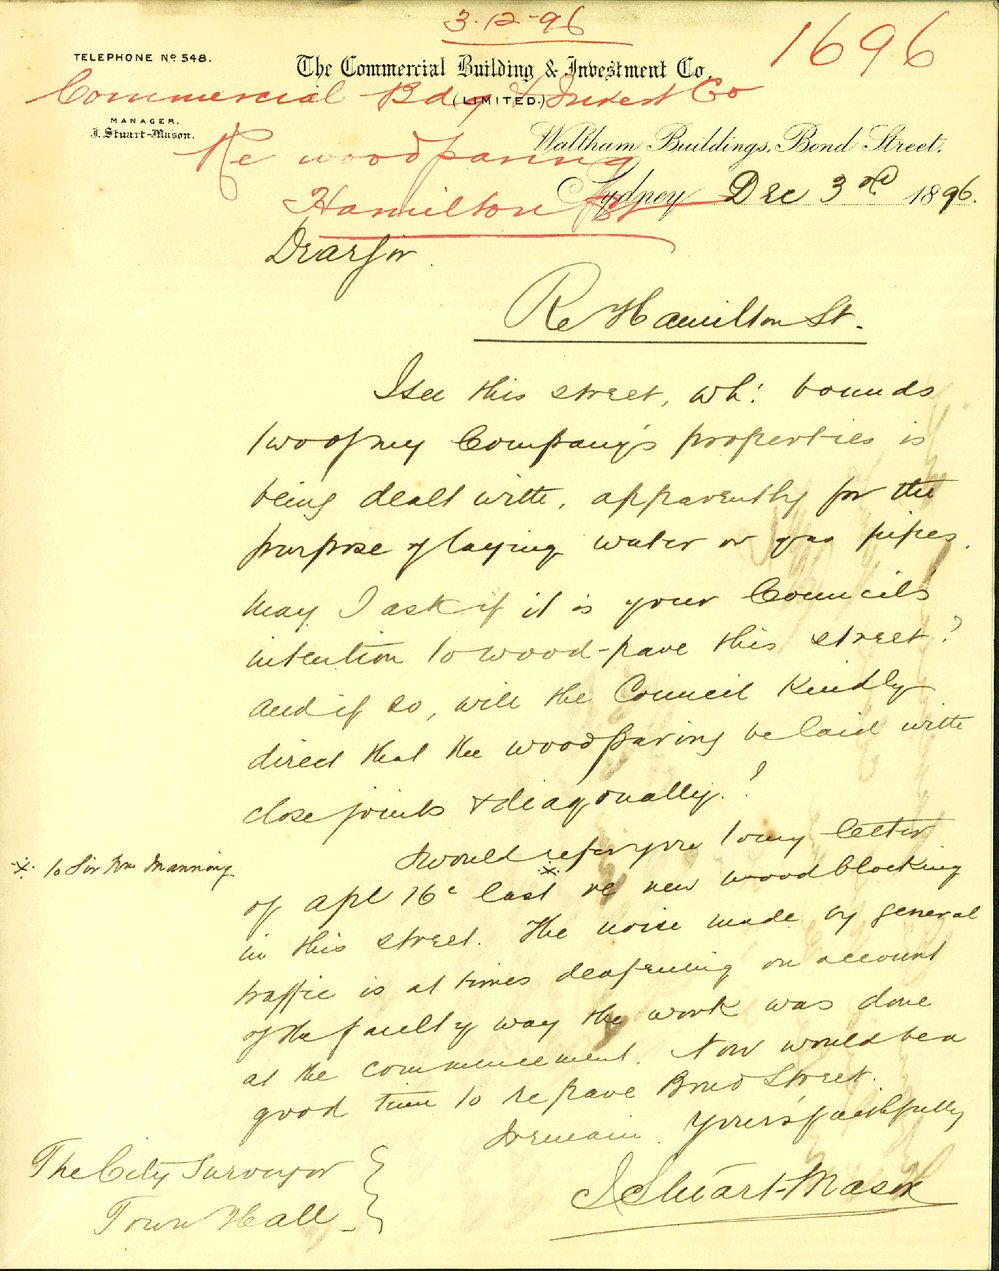 3-12-96
1696
TELEPHONE No 548.
The Commercial Building & Investment Co.
Commercial Bdg & Invest Co
(LIMITED.)
MANAGER.
J. Stuart-Mason.
Re woodpaving
Waltham Buildings, Bond Street,
Hamilton St
Sydney Dec 3rd 1896.
Dear Sir
Re Hamilton St.
I see this street, wh: bounds
two of my Company's properties is
being dealt with, apparently for the
purpose of laying water or gas pipes.
May I ask if it is your Council's
intention to wood-pave this street?
and if so, will the Council kindly
direct that the woodpaving be laid with
close joints & diagonally?
I would refer you to my letter
※ to Sir Wm Manning
of Apl 16c last ※ re new woodblocking
in this street. The noise made by general
traffic is at times deafening on account
of the faulty way the work was done
at the commencement. Now would be a
good time to repave Bond Street.
I remain Yours faithfully
J Stuart-Mason
The City Surveyor
Town Hall